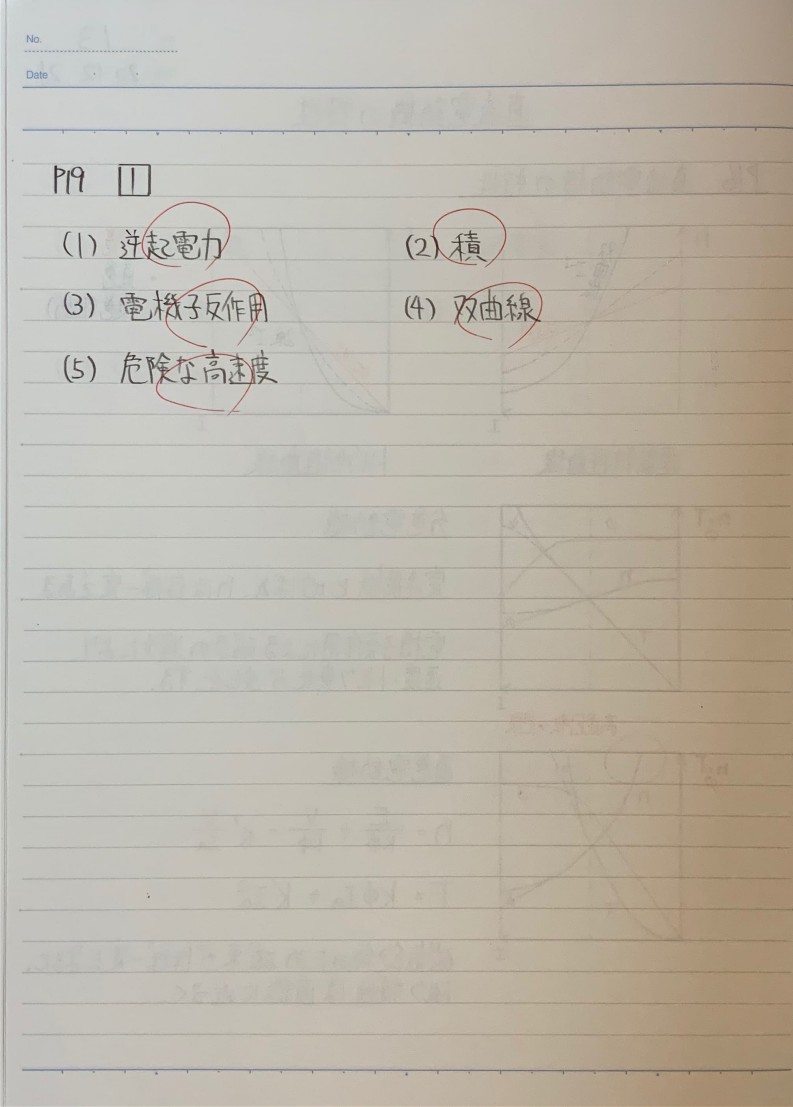 No.
Date
P19 1
(1) 逆起電力 (2) 積
(3) 電機子反作用 (4) 双曲線
(5) 危険な高速度